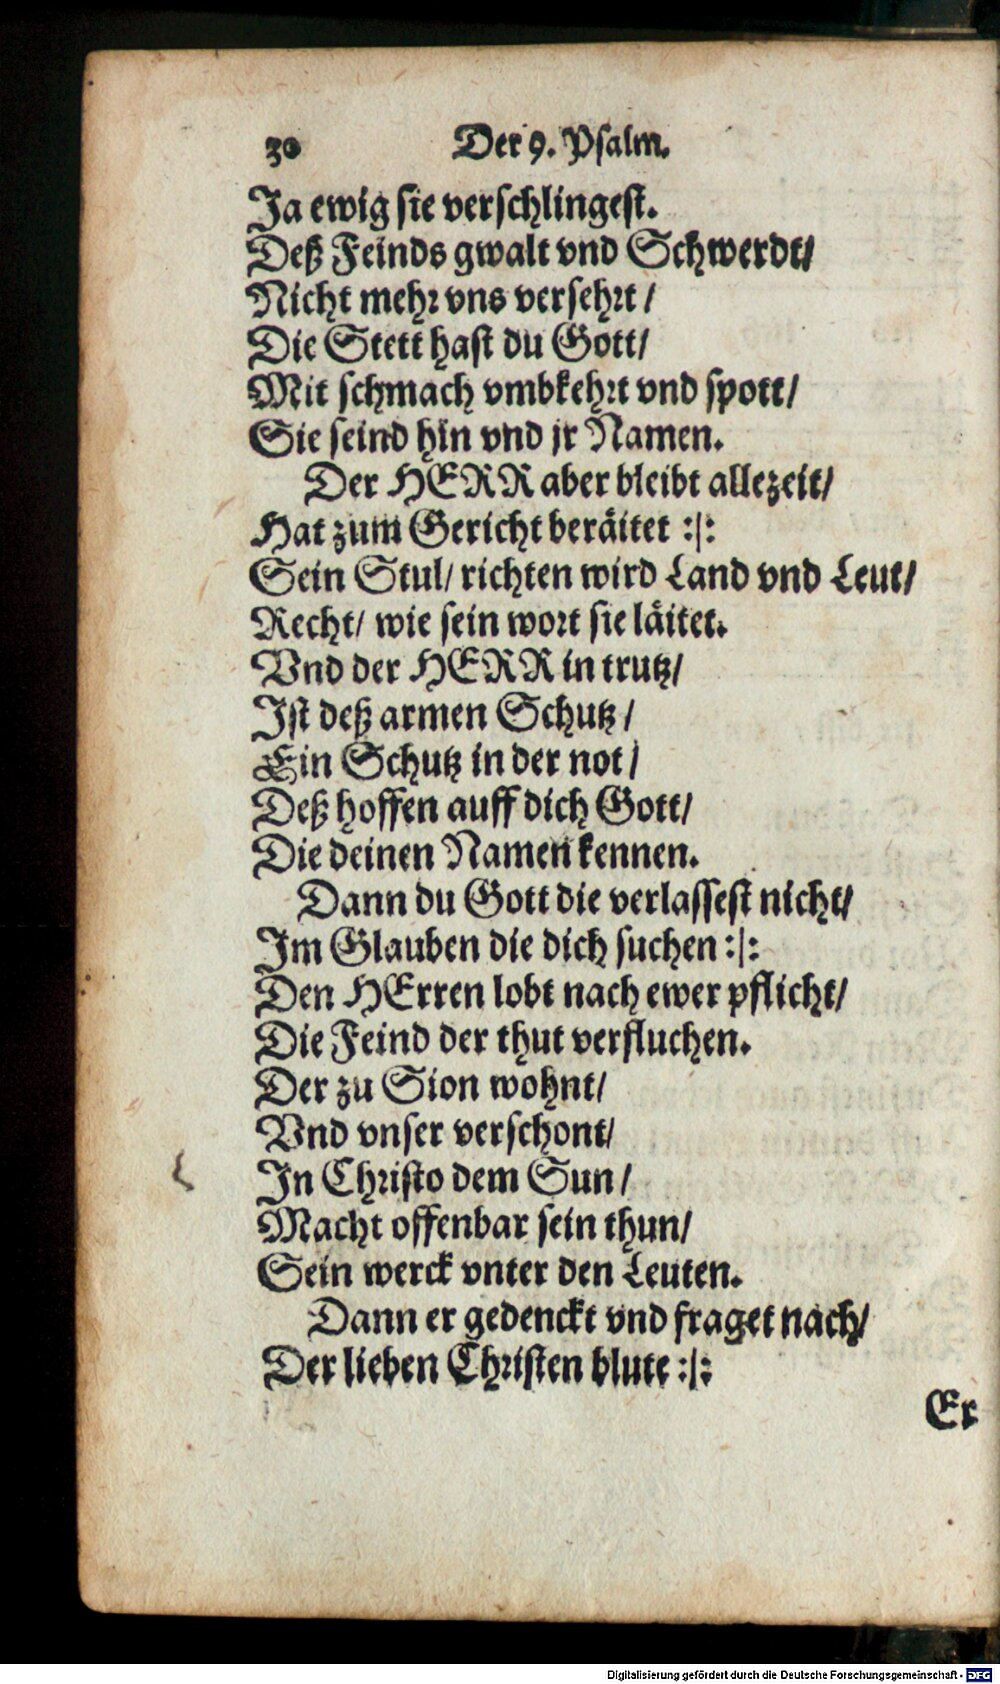 30 Der 9. Psalm.
Ja ewig sie verschlingest.
Deß Feinds gwalt vnd Schwerdt/
Nicht mehr vns versehrt /
Die Stett hast du Gott/
Mit schmach vmbkehrt vnd spott/
Sie seind hin vnd jr Namen.
Der HERR aber bleibt allezeit/
Hat zum Gericht beräitet :|:
Sein Stul/ richten wird Land vnd Leut/
Recht/ wie sein wort sie läitet.
Vnd der HERR in trutz/
Ist deß armen Schutz /
Ein Schutz in der not /
Deß hoffen auff dich Gott/
Die deinen Namen kennen.
Dann du Gott die verlassest nicht/
Im Glauben die dich suchen :|:
Den HErren lobt nach ewer pflicht/
Die Feind der thut verfluchen.
Der zu Sion wohnt/
Vnd vnser verschont/
In Christo dem Sun /
Macht offenbar sein thun/
Sein werck vnter den Leuten.
Dann er gedenckt vnd fraget nach/
Der lieben Christen blute :|:
Er
Digitalisierung gefördert durch die Deutsche Forschungsgemeinschaft - DFG